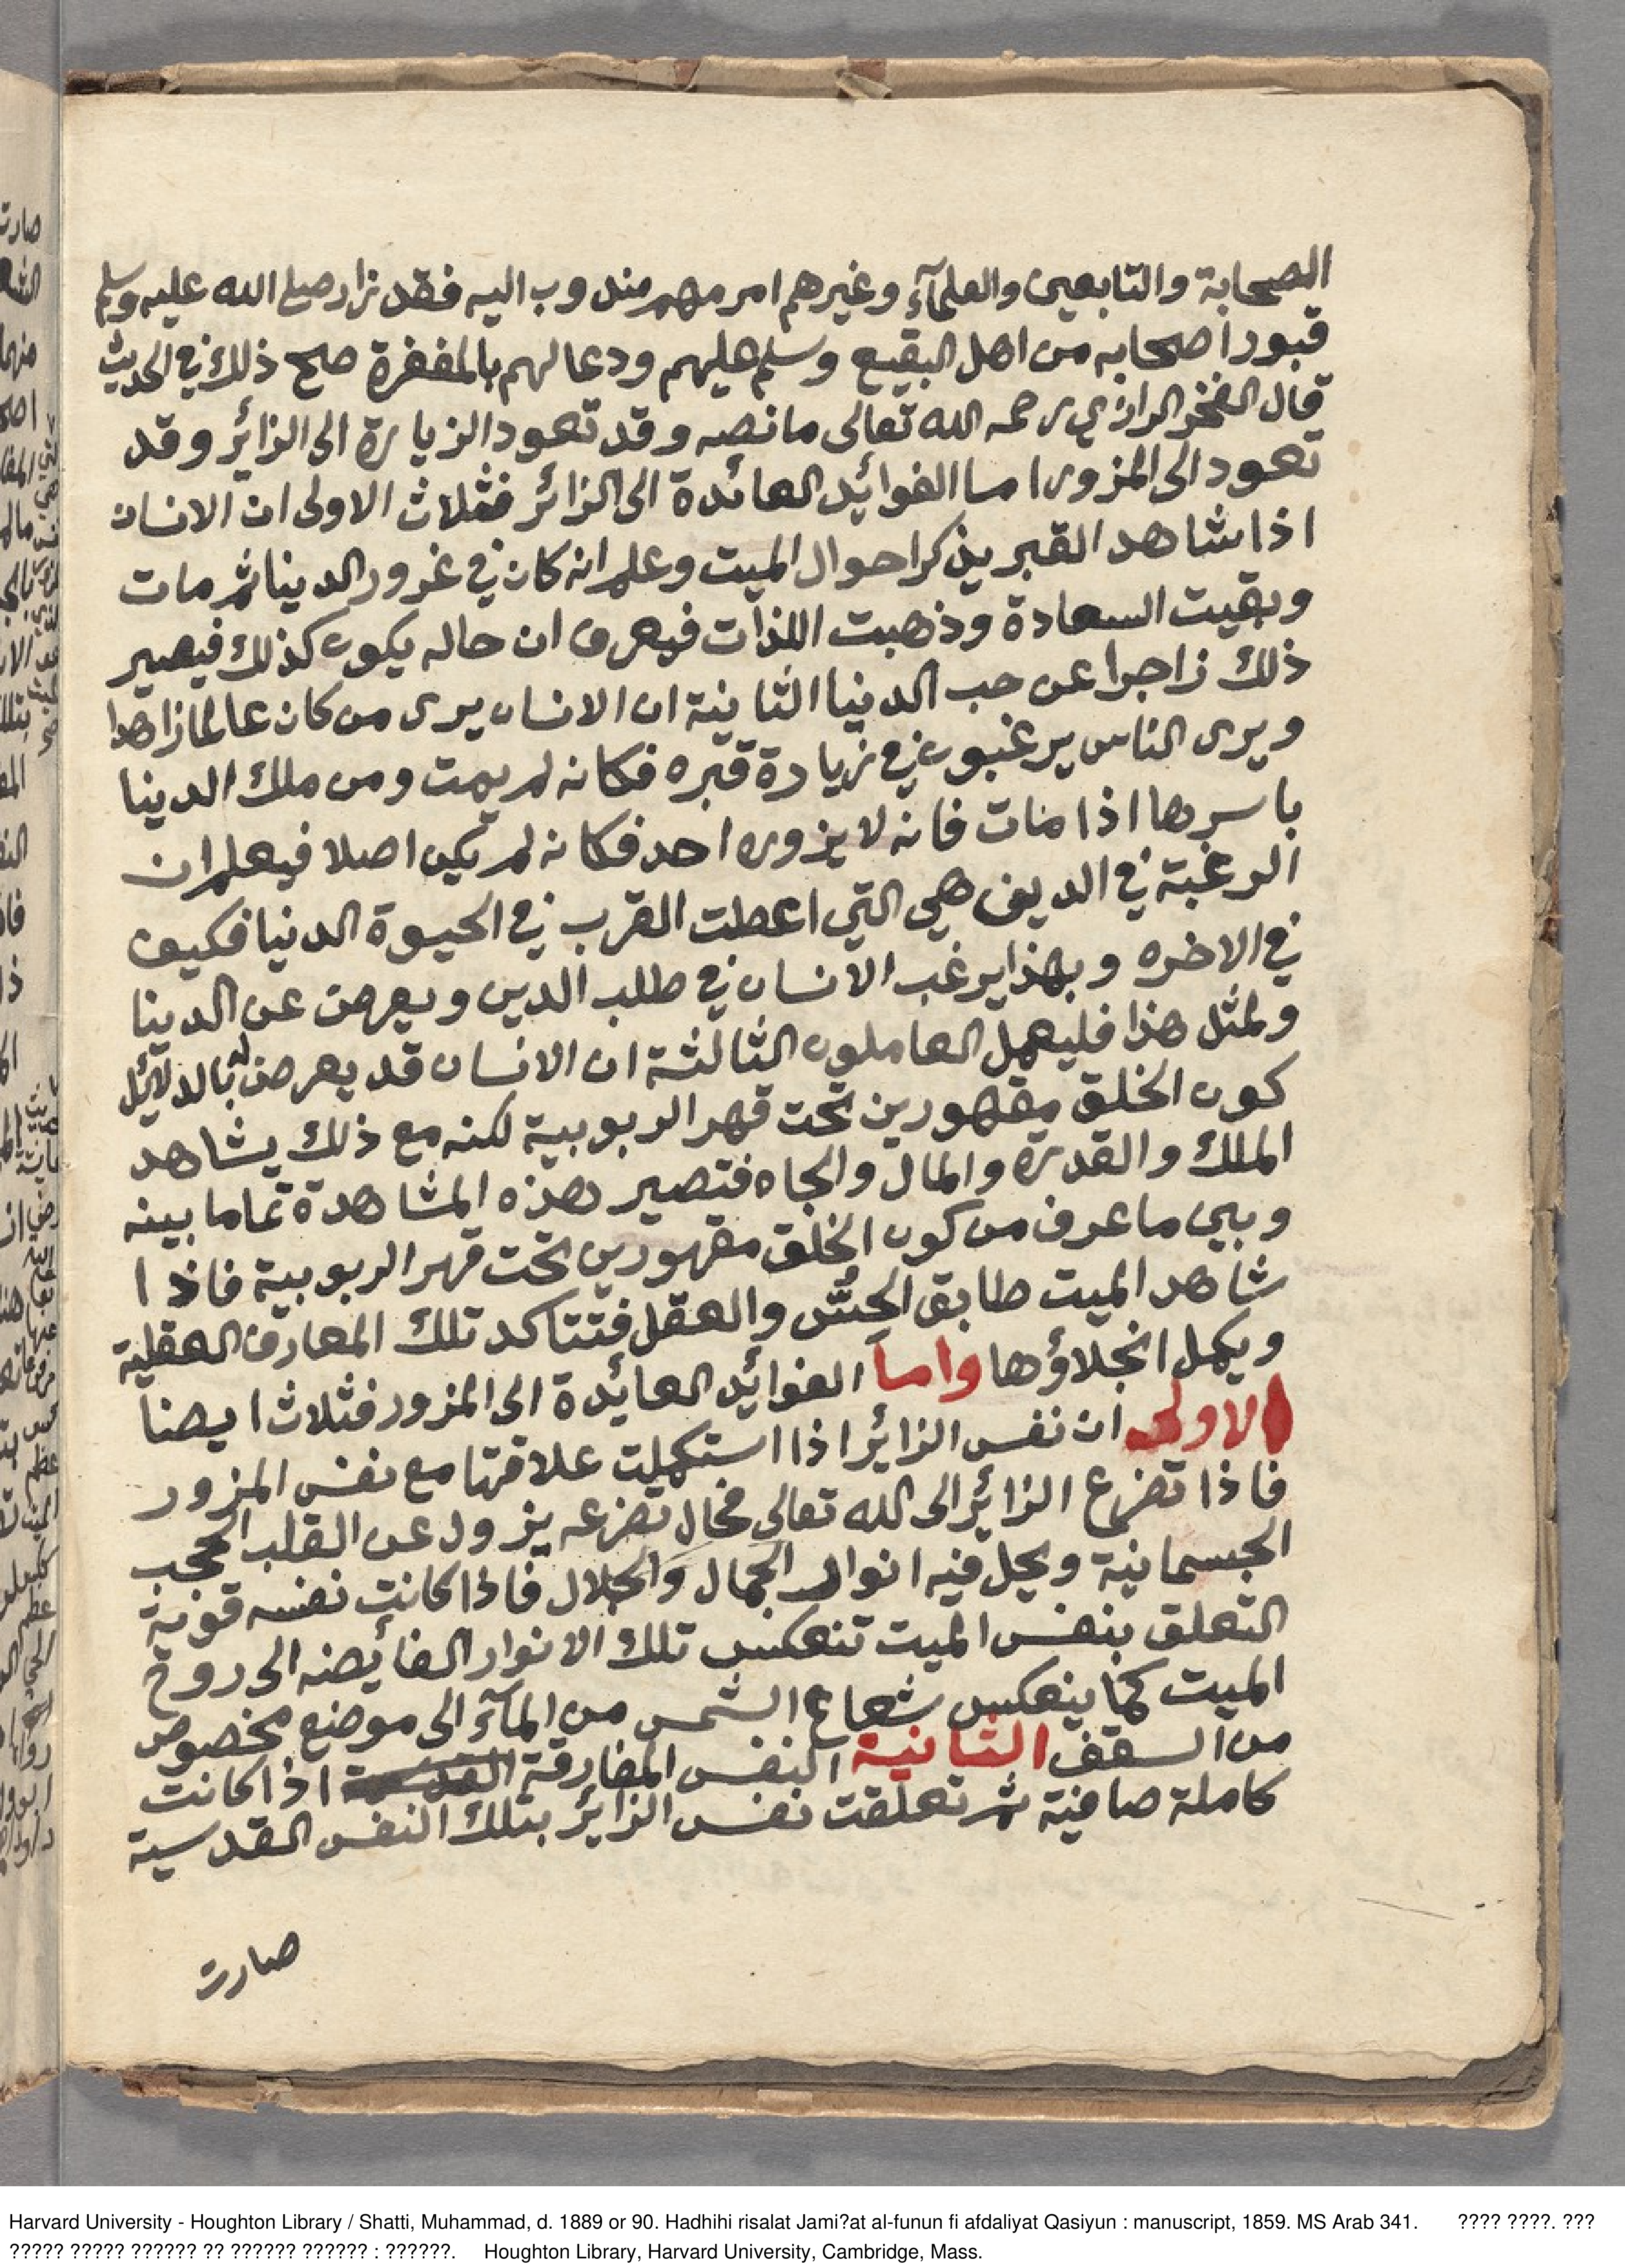 الصحابة والتابعين والعلمآء وغيرهم امر مهم مندوب اليه فقد زار صلى الله عليه وسلم
قبور اصحابه من اهل البقيع وسلم عليهم ودعا لهم بالمغفرة صح ذلك في الحديث
قال الفخر الرازي رحمه الله تعالى ما نصه وقد تعود الزيارة الى الزائر وقد
تعود الى المزور اما الفوائد العائدة الى الزائر فثلاث الاولى ان الانسان
اذا شاهد القبر يذكر احوال الميت وعلم انه كان في غرور الدينا ثم مات
وبقيت السعادة وذهبت اللذات فيعرف ان حاله يكون كذلك فيصير
ذلك زاجرا عن حب الدنيا الثانية ان الانسان يرى من كان عالما زاهدا
ويرى الناس يرغبون في زيادة قبره فكانه لم يمت ومن ملك الدينا
باسرها اذا مات فانه لا يزوره احد فكانه لم يكن اصلا فيعلم ان
الرغبة في الدين هي التي اعطت القرب في الحيوة الدنيا فكيف
في الاخره وبهذا يرغب الانسان في طلب الدين ويعرض عن الدينا
ولمثل هذا فليعمل العاملون الثالثة ان الانسان قد يعرض له بالدلائل
كون الخلق مقهورين تحت قهر الربوبية لكنه مع ذلك يشاهد
الملك والقدرة والمال والجاه فتصير هذه المشاهدة تماما بينه
وبين ما عرف من كون الخلق مقهورين تحت قهر الربوبية فاذا
شاهد الميت طابق الحسّ والعقل فتتاكد تلك المعارف العقلية
ويكمل انجلاؤها واما الفوائد العايدة الى المزور فثلاث ايضا
الاولى ان نفس الزائر اذا استكملت علاقتها مع نفس المزور
فاذا تضرع الزائر الى الله تعالى فحال تضرعه يزول عن القلب الحجب
الجسمانية ويحل فيه انوار الجمال والجلال فاذا كانت نفسه قوية
التعلق بنفس الميت تنعكس تلك الانوار الفائضه الى روح
الميت كما ينعكس شعاع الشمس من المآء الى موضع مخصوص
من السقف الثانية النفس المفارقة اذا كانت
كاملة صافية ثم تعلقت نفس الزائر بتلك النفس القدسية
صارت
Harvard University - Houghton Library / Shatti, Muhammad, d. 1889 or 90. Hadhihi risalat Jami?at al-funun fi afdaliyat Qasiyun : manuscript, 1859. MS Arab 341. ???? ????. ???
????? ????? ?????? ?? ?????? ?????? : ??????. Houghton Library, Harvard University, Cambridge, Mass.